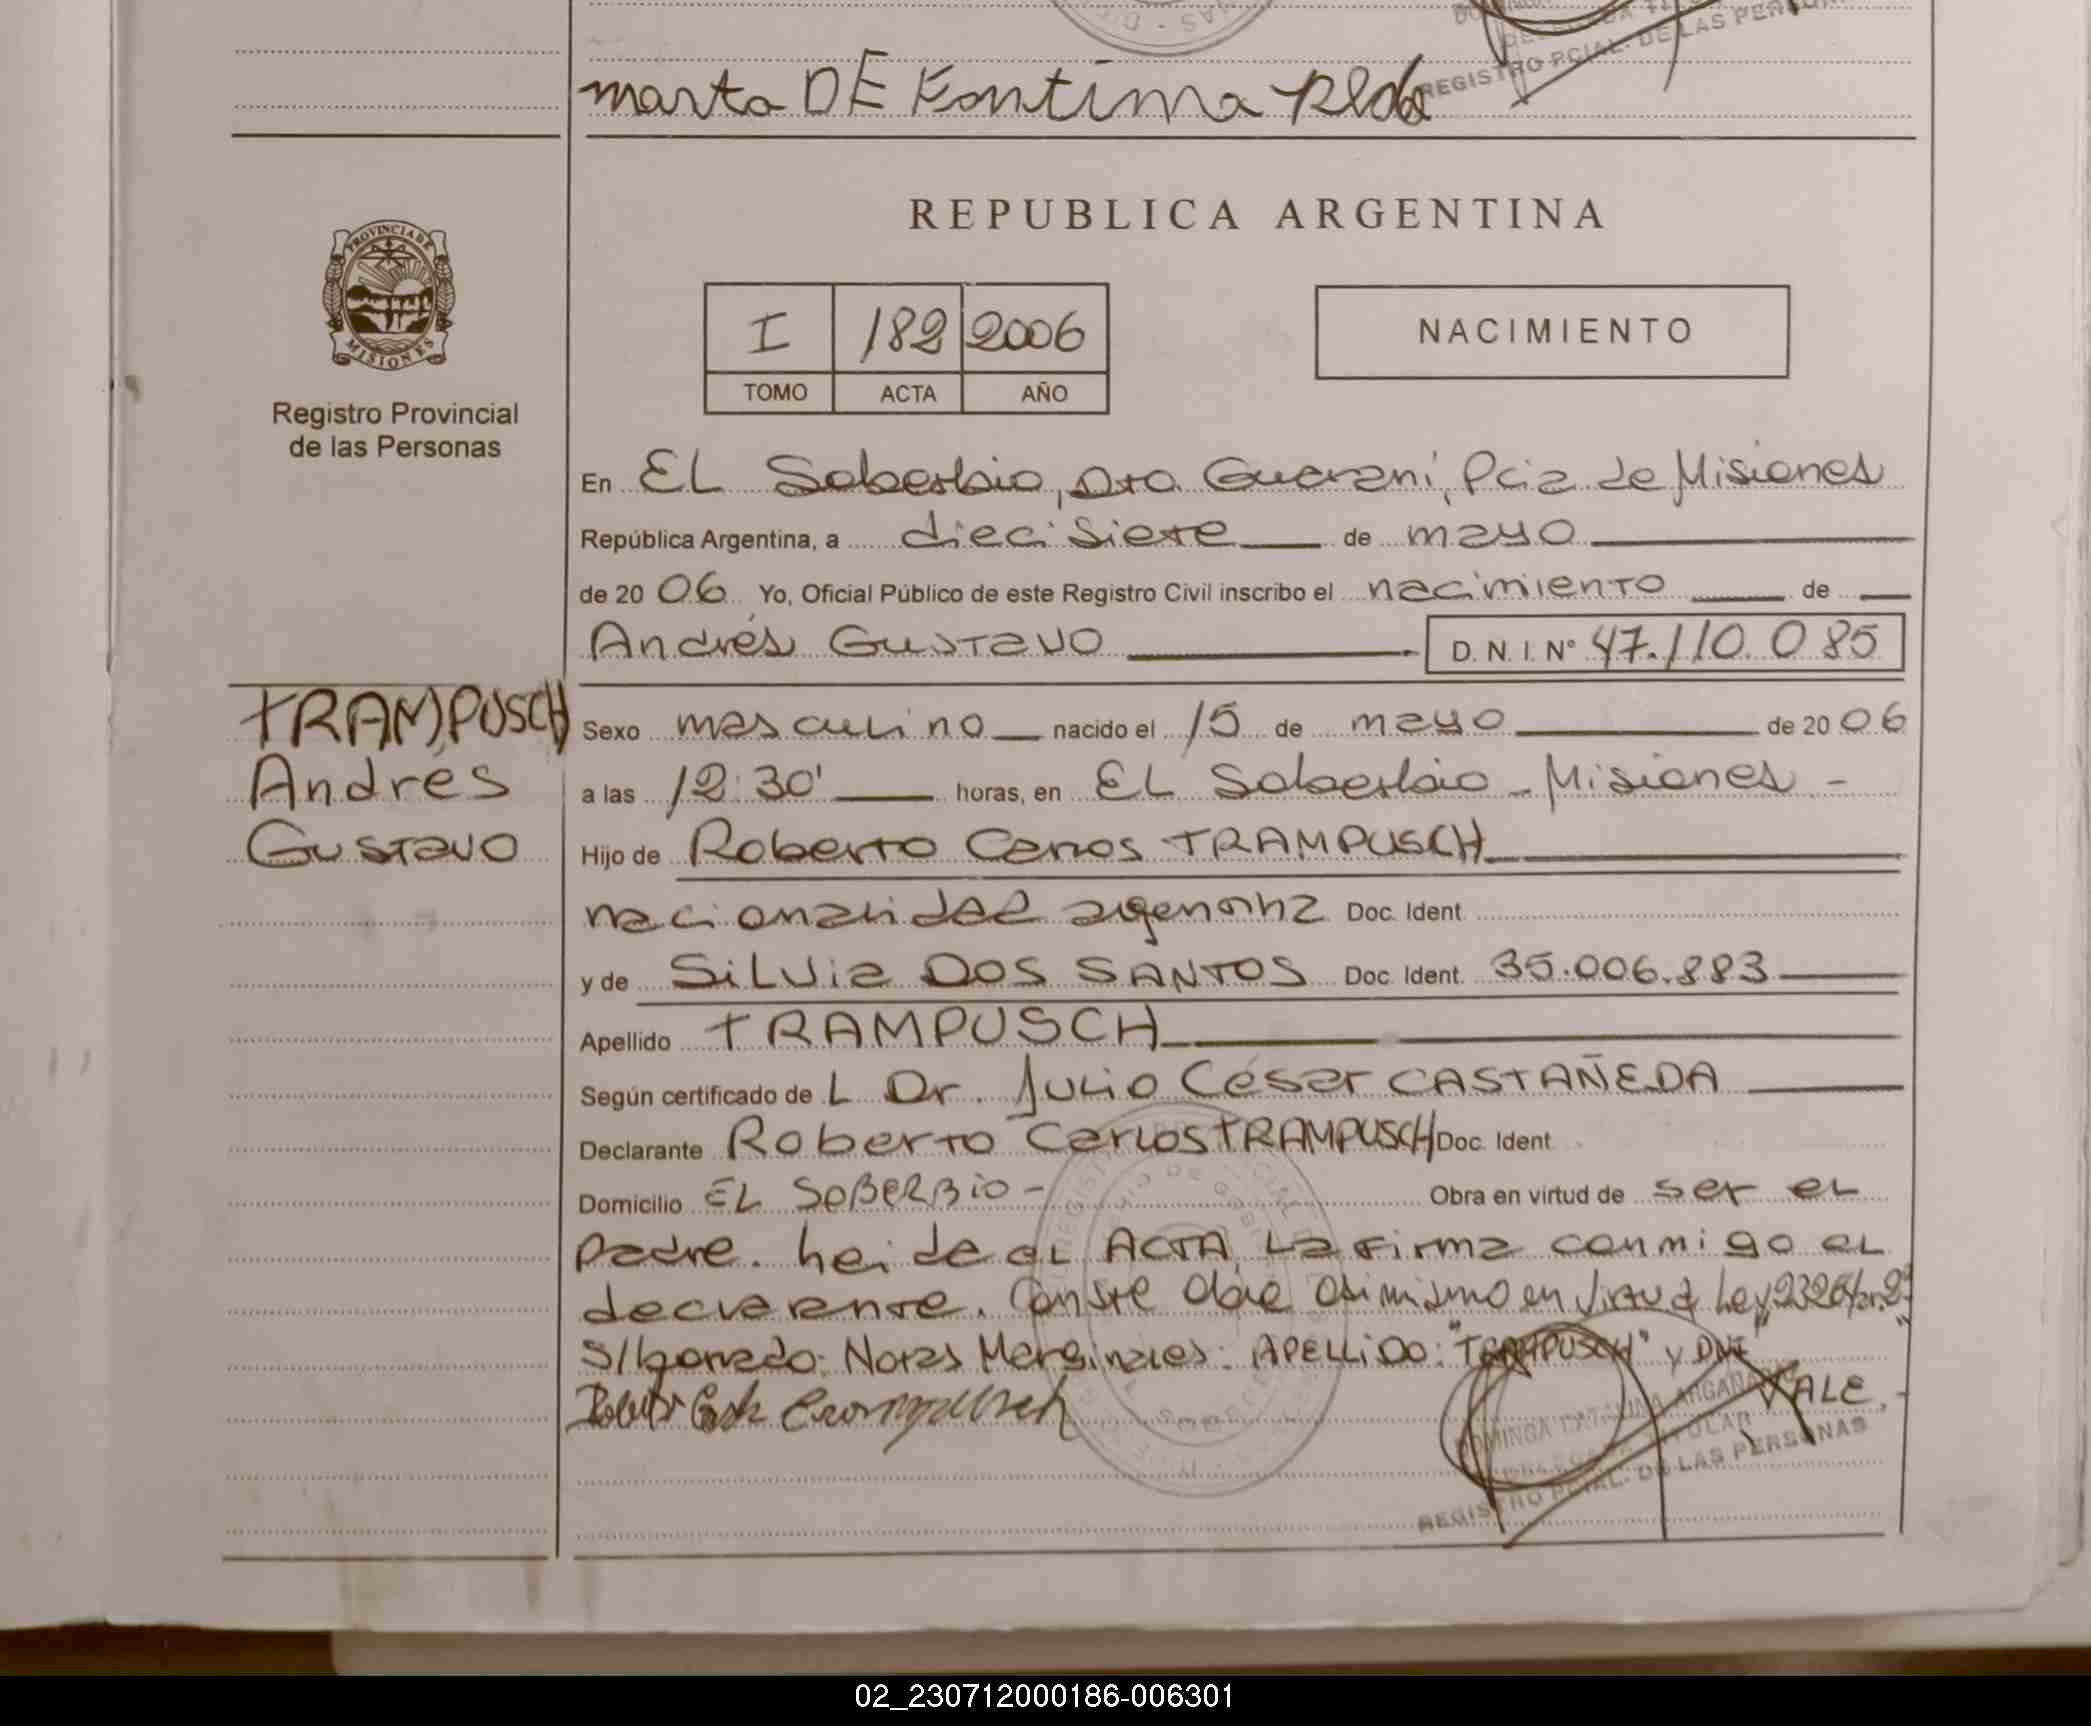 DELEGADA TITULAR
REGISTRO PCIAL. DE LAS PERSONAS
marta DE Fontima
REPUBLICA ARGENTINA
PROVINCIA DE
MISIONES
I 182 2006
TOMO ACTA AÑO
NACIMIENTO
Registro Provincial
de las Personas
En EL Soberbio, Dto. Guarani, Pcia de Misiones
República Argentina, a diecisiete de mayo
de 20 06 Yo, Oficial Público de este Registro Civil inscribo el nacimiento de
Andrés Gustavo D.N.I. N° 47.110.085
TRAMPUSCH
Andrés
Gustavo
Sexo masculino nacido el 15 de mayo de 20 06
a las 12:30' horas, en EL Soberbio - Misiones -
Hijo de Roberto Carlos TRAMPUSCH
nacionalidad argentina Doc. Ident.
y de Silvia DOS SANTOS Doc. Ident. 35.006.883
Apellido TRAMPUSCH
Según certificado de L Dr. Julio César CASTAÑEDA
Declarante Roberto Carlos TRAMPUSCH Doc. Ident.
Domicilio EL SOBERBIO - Obra en virtud de ser el
padre. heide el ACTA La firma conmigo el
declarante. Conste Asimismo en Ley
S/borrado: Notas Marginales: APELLIDO: "TRAMPUSCH" y DNI
VALE.-
DOMINGA CATALINA
DELEGADA TITULAR
REGISTRO PCIAL. DE LAS PERSONAS
02_230712000186-006301